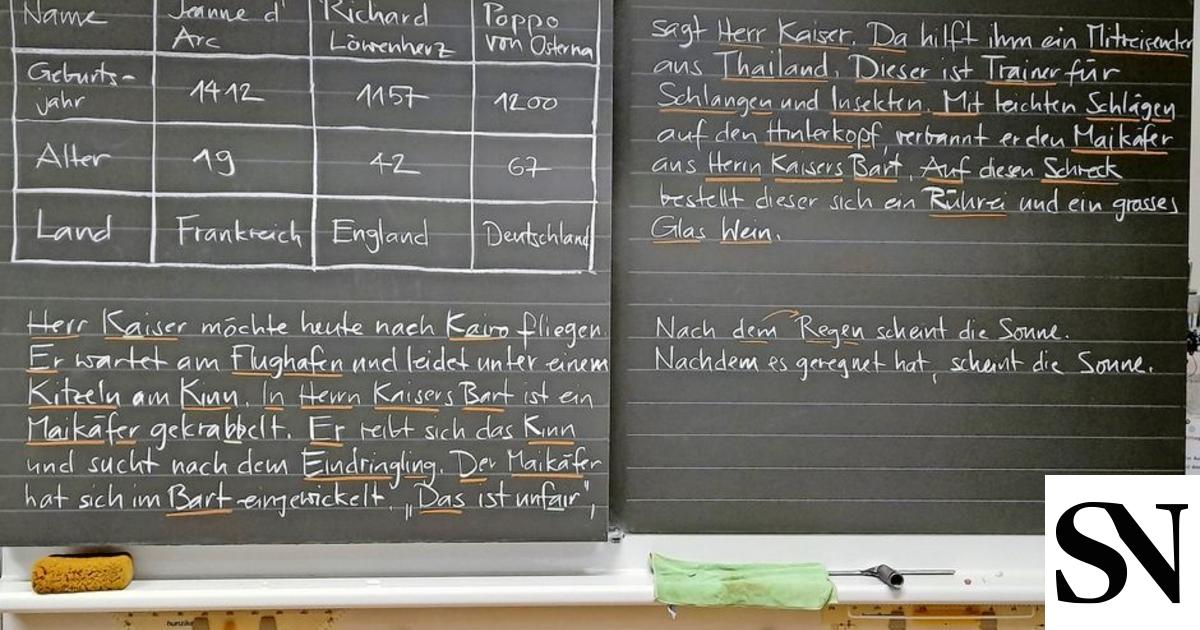 Name Jeanne d' Arc Richard Löwenherz Poppo von Osterna
Geburts-
jahr 1412 1157 1200
Alter 19 42 67
Land Frankreich England Deutschland
Herr Kaiser möchte heute nach Kairo fliegen.
Er wartet am Flughafen und leidet unter einem
Kitzeln am Kinn. In Herrn Kaisers Bart ist ein
Maikäfer gekrabbelt. Er reibt sich das Kinn
und sucht nach dem Eindringling. Der Maikäfer
hat sich im Bart eingewickelt. „Das ist unfair",
sagt Herr Kaiser. Da hilft ihm ein Mitreisender
aus Thailand. Dieser ist Trainer für
Schlangen und Insekten. Mit leichten Schlägen
auf den Hinterkopf, verbannt er den Maikäfer
aus Herrn Kaisers Bart. Auf diesen Schreck
bestellt dieser sich ein Rührei und ein grosses
Glas Wein.
Nach dem Regen scheint die Sonne.
Nachdem es geregnet hat, scheint die Sonne.
hunziker
SN